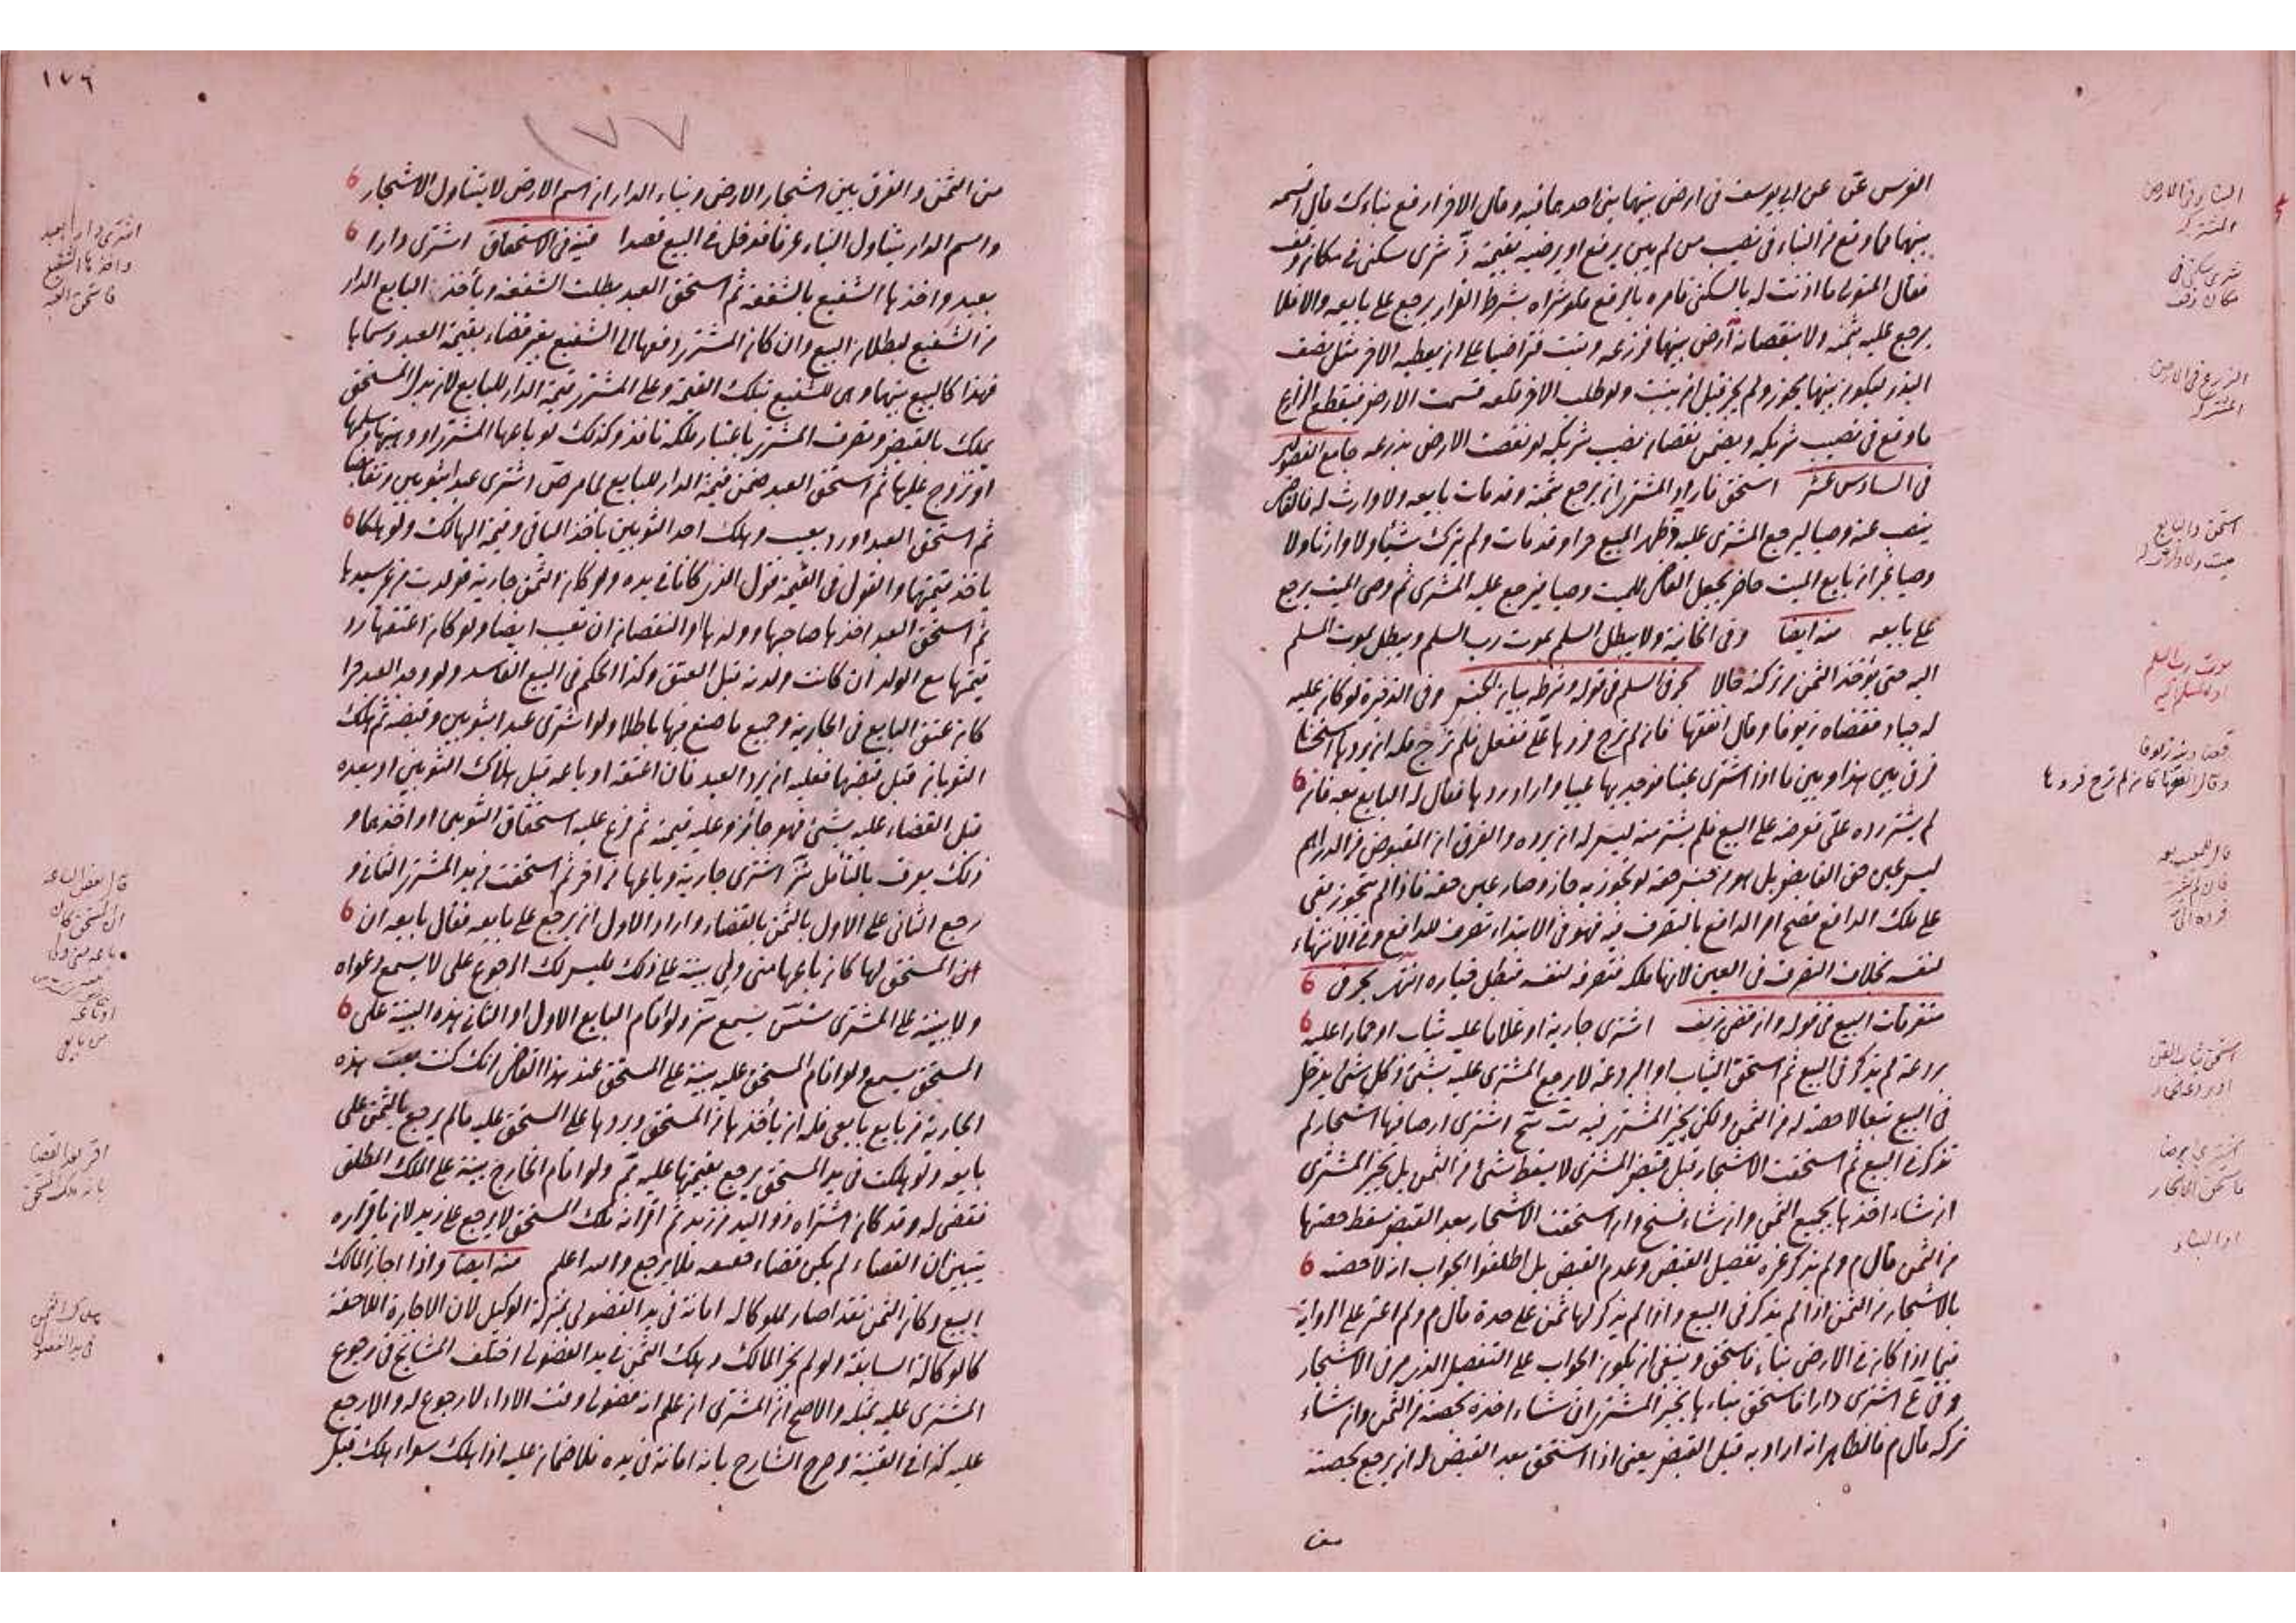 الغرس عن عن ابي يوسف في ارض بينهما بنى احدهما فيه وقال الاخر ارفع بناءك قال اقسمه
بينهما فما وقع من البناء في نصيب من لم يبن يرفع او يرضيه بقيمته شرى سكنى في مكان وقف
فقال المتولي ما اذنت له بالسكنى فامره بالرفع فلو شراه بشرط القرار يرجع على بايعه والا فلا
يرجع عليه بثمنه ولا بنقصانه ارض بينهما فزرعه ونبت فتراضيا على ان يعطيه الاخر مثل نصف
البذر ليكون بينهما يجوز ولم يجز قبل ان ينبت ولو طلب الاخر قلعه قسمت الارض فيقطع الزارع
ما وقع في نصيب شريكه ويضمن نقصان نصيب شريكه لو نقصت الارض بزرعه جامع الفصولين
في السادس عشر استحق فاراد المشتري ان يرجع بثمنه وقد مات بايعه ولا وارث له فالقاضي
ينصب عنه وصيا ليرجع المشتري عليه فظهر المبيع حرا وقد مات ولم يترك شيئا ولا وارثا ولا
وصيا غير ان بايع الميت حاضر يجعل القاضي للميت وصيا فيرجع عليه المشتري ثم وصي الميت يرجع
على بايعه منه ايضا وفي الخانية ولا يبطل السلم بموت رب السلم ويبطل بموت المسلم
اليه حتى يؤخذ الثمن من تركته حالا بحر في السلم في قوله وشرطه بيان الجنس وفي الذخيرة لو كان عليه
له جياد فقضاه زيوفا وقال انفقها فان لم ترج فردها علي ففعل فلم ترج فله ان يردها استحسانا
فرق بين هذا وبين ما اذا اشترى عينا فوجد بها عيبا واراد ردها فقال له البايع بعه فان
لم يشتر رده علي فعرضه على البيع فلم يشتر منه ليس له ان يرده والفرق ان المقبوض من الدراهم
ليس عين حق القابض بل هو من جنس حقه لو تجوز به جاز وصار عين حقه فاذا لم يتجوز بقي
على ملك الدافع فصح امر الدافع بالتصرف فيه فهو في الابتداء تصرف للدافع وفي الانتهاء
لنفسه بخلاف التصرف في العين لانها ملكه فتصرفه لنفسه فبطل خياره انتهى بحر في
متفرقات البيع في قوله وان قضى زيف اشترى جارية او غلاما عليه ثياب او حمارا عليه
بردعة لم يذكر في البيع ثم استحق الثياب او البردعة لا يرجع المشتري عليه بشئ وكل شئ يدخل
في البيع تبعا لا حصة له من الثمن ولكن يخير المشتري فيه اشترى ارضا فيها اشجار لم
تذكر في البيع ثم استحقت الاشجار قبل قبض المشتري لا يسقط شئ من الثمن بل يخير المشتري
ان شاء اخذها بجميع الثمن وان شاء فسخ وان استحقت الاشجار بعد القبض سقط حصتها
من الثمن قال م ولم يذكر غيره تفصيل القبض وعدم القبض بل اطلقوا الجواب انه لا حصة
بالاشجار من الثمن اذا لم يذكر في البيع واذا لم يذكر لها ثمن على حدة قال م ولم اعثر على الرواية
فيما اذا كان في الارض بناء فاستحق وينبغي ان يكون الجواب على التفصيل الذي مر في الاشجار
وفي اشترى دارا فاستحق بناءها يخير المشتري ان شاء اخذه بحصته من الثمن وان شاء
تركه قال م فالظاهر انه اراد به قبل القبض يعني اذا استحق بعد القبض له ان يرجع بحصته
البناء في الارض
المشتركة
شرى سكنى في
مكان وقف
الزرع في الارض
المشتركة
استحق والبايع
ميت ولا وارث له
موت رب السلم
او المسلم اليه
قضاء دينه زيوفا
وقال انفقها فان لم ترج فردها
اشترى ارضا
فاستحق الاشجار
او البناء
١٧٦
١٧٧
من الثمن والفرق بين اشجار الارض وبناء الدار ان اسم الارض لا يتناول الاشجار
واسم الدار يتناول البناء عرفا فدخل في البيع قصدا قنية في الاستحقاق اشترى دارا
بعبد واخذها الشفيع بالشفعة ثم استحق العبد بطلت الشفعة ويأخذ البايع الدار
من الشفيع لبطلان البيع وان كان المشتري دفعها الى الشفيع بغير قضاء بقيمة العبد وسماها
فهذا كالبيع بينهما وهي للشفيع بتلك القيمة وعلى المشتري قيمة الدار للبايع لان بدل المستحق
يملك بالقبض وتصرف المشتري باعتبار ملكه نافذ وكذلك لو باعها المشتري او وهبها وسلمها
او تزوج عليها ثم استحق العبد ضمن قيمة الدار للبايع لما مر اشترى عبدا بثوبين وتقابضا
ثم استحق العبد او رد بعيب وهلك احد الثوبين ياخذ الباقي وقيمة الهالك ولو هلكا
ياخذ قيمتهما والقول في القيمة قول الذي كانا في يده ولو كان الثمن جارية فولدت من غير سيدها
ثم استحق العبد اخذها صاحبها وولدها او النقصان ان تعيبت ايضا ولو كان اعتقها رد
قيمتها مع الولد ان كانت ولدته قبل العتق وكذا الحكم في البيع الفاسد ولو وجد العبد حرا
كان عتق البايع في الجارية وجميع ما صنع فيها باطلا ولو اشترى عبدا بثوبين وقبضه ثم هلك
الثوبان قبل قبضها فعليه ان يرد العبد فان اعتقه او باعه قبل هلاك الثوبين او بعده
قبل القضاء عليه بشئ فهو جائز وعليه قيمته ثم فرع عليه استحقاق الثوبين او احدهما و
ذلك يعرف بالتأمل اشترى جارية وباعها من اخر ثم استحقت في يد المشتري الثاني و
رجع الثاني على الاول بالثمن بالقضاء واراد الاول ان يرجع على بايعه فقال بايعه ان
المستحق لها كان باعها مني ولي بينة على ذلك فليس لك الرجوع علي لا يسمع دعواه
ولا بينته على المشتري يسمع ولو اقام البايع الاول او الثاني هذه البينة على
المستحق يسمع ولو اقام المستحق عليه بينة على المستحق عند هذا القاضي انك كنت بعت هذه
الجارية من بايع بايعي فله ان يأخذها من المستحق ويردها على المستحق عليه ما لم يرجع بالثمن على
بايعه ولو هلكت في يد المستحق يرجع بقيمتها عليه ولو اقام الخارج بينة على الملك المطلق
فقضى له وقد كان اشتراه ذو اليد من زيد ثم اقر انه ملك المستحق لا يرجع على زيد لان باقراره
يتبين ان القضاء لم يكن قضاء فلا يرجع والله اعلم منه ايضا واذا اجاز المالك
البيع وكان الثمن نقدا صار مملوكا له امانة في يد الفضولي بمنزلة الوكيل لان الاجازة اللاحقة
كالوكالة السابقة ولو لم يجز المالك وهلك الثمن في يد الفضولي اختلف المشايخ في رجوع
المشتري عليه بمثله والاصح ان المشتري ان علم انه فضولي وقت الاداء لا رجوع له والا رجع
عليه كذا في القنية وصرح الشارح بانه امانة في يده فلا ضمان عليه اذا هلك سواء هلك قبل
اشترى دارا بعبد
واخذها الشفيع
فاستحق العبد
اقر بعد القضاء
بانه ملك المستحق
هلاك الثمن
في يد الفضولي